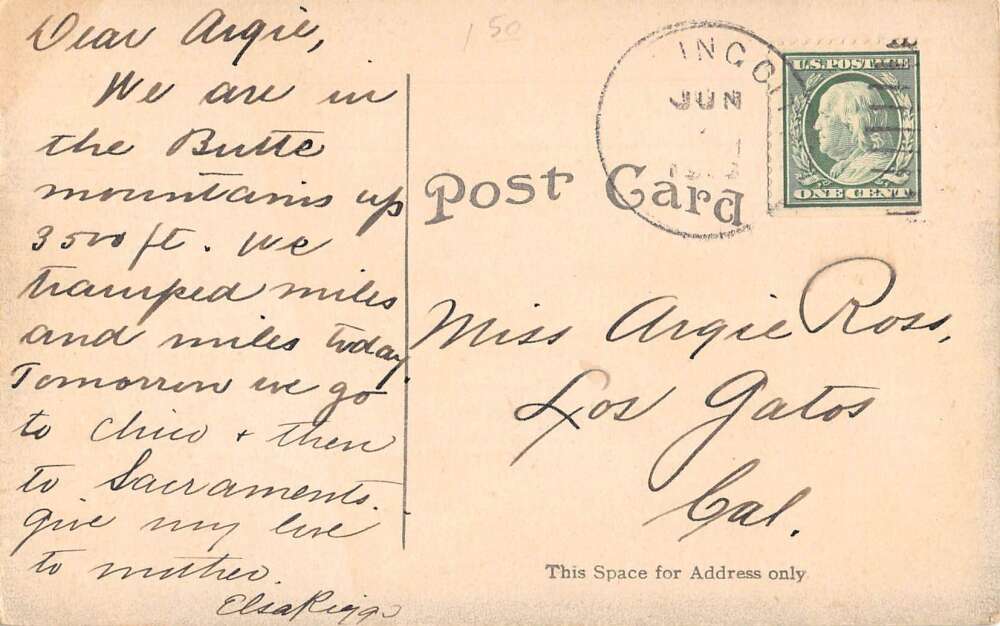 Dear Argie,
We are in
the Butte
mountains up
3500 ft. We
tramped miles
and miles today.
Tomorrow we go
to Chico + then
to Sacramento.
Give my love
to mother.
Elsa Riggs
1 50
JUN
U.S. POSTAGE
ONE CENT
Post Card
Miss Argie Ross,
Los Gatos
Cal.
This Space for Address only